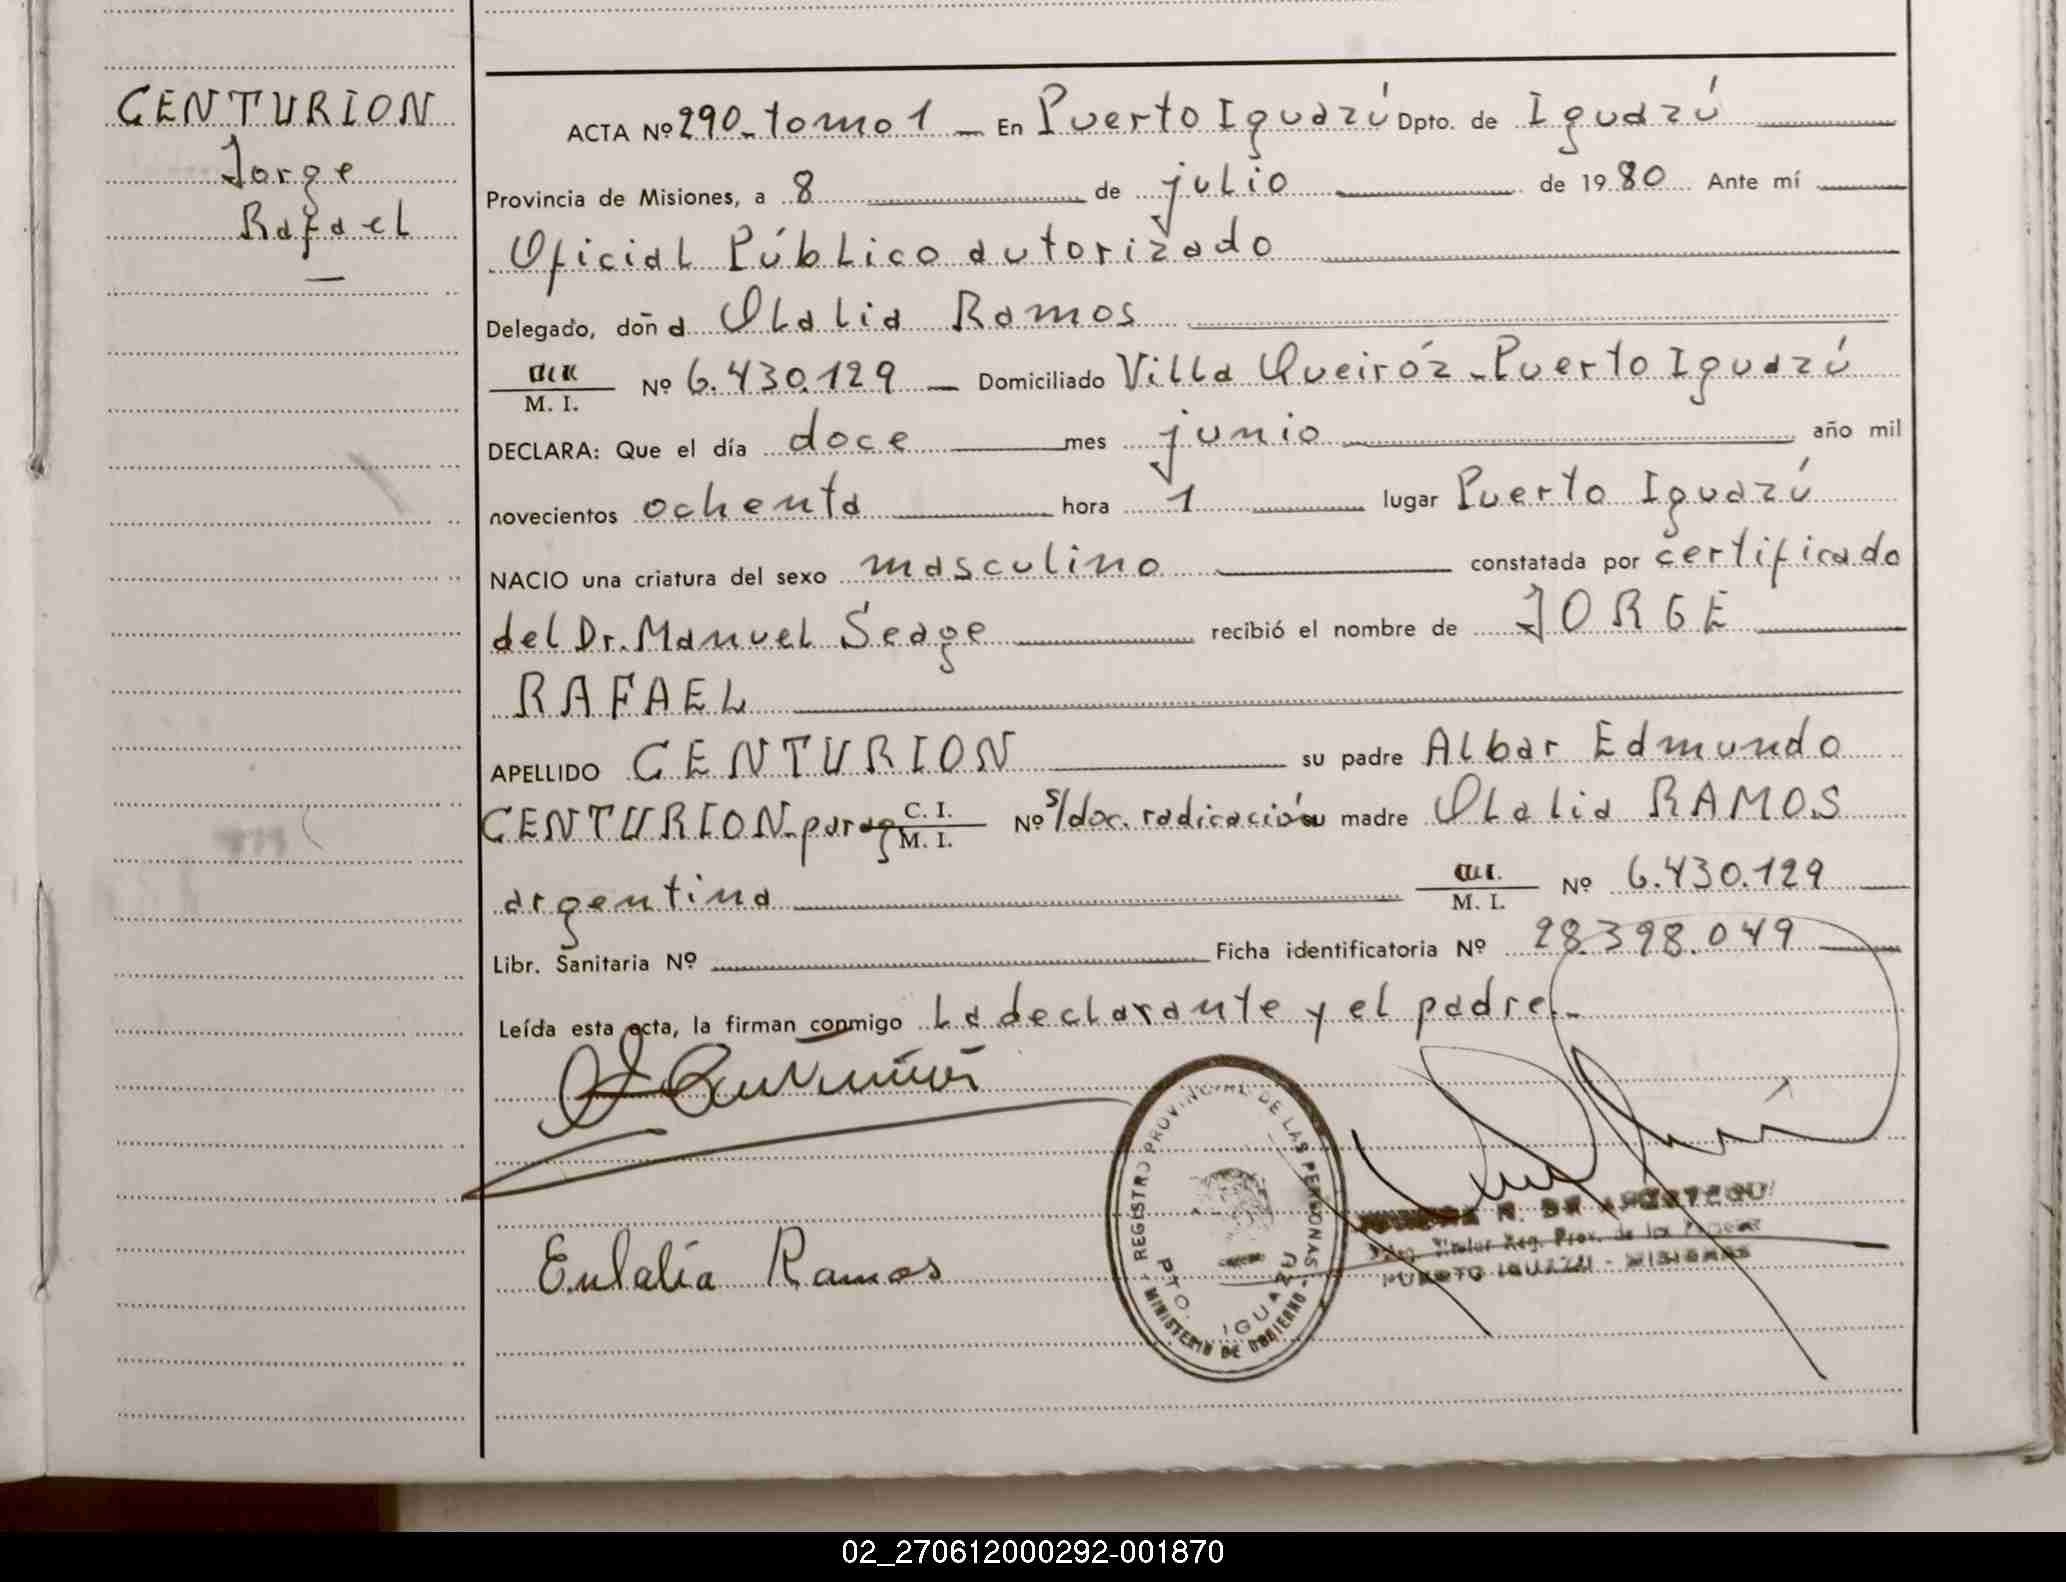 CENTURION
Jorge
Rafael
ACTA Nº 290 - tomo 1 - En Puerto Iguazú Dpto. de Iguazú
Provincia de Misiones, a 8 de julio de 1980 Ante mí
Oficial Público autorizado
Delegado, doña Olalia Ramos
M. I. Nº 6.430.129 - Domiciliado Villa Queiróz - Puerto Iguazú
DECLARA: Que el día doce mes junio año mil
novecientos ochenta hora 1 lugar Puerto Iguazú
NACIO una criatura del sexo masculino constatada por certificado
del Dr. Manuel Seage recibió el nombre de JORGE
RAFAEL
APELLIDO CENTURION su padre Albar Edmundo
CENTURION - parag C. I. M. I. Nº s/doc. radicación su madre Olalia RAMOS
argentina M. I. Nº 6.430.129
Libr. Sanitaria Nº Ficha identificatoria Nº 28.398.049
Leída esta acta, la firman conmigo La declarante y el padre.-
REGISTRO PROVINCIAL DE LAS PERSONAS
PTO. IGUAZU
MINISTERIO DE GOBIERNO
N. DE
Titular Reg. Prov. de las
PUERTO IGUAZU - MISIONES
Eulalia Ramos
02_270612000292-001870